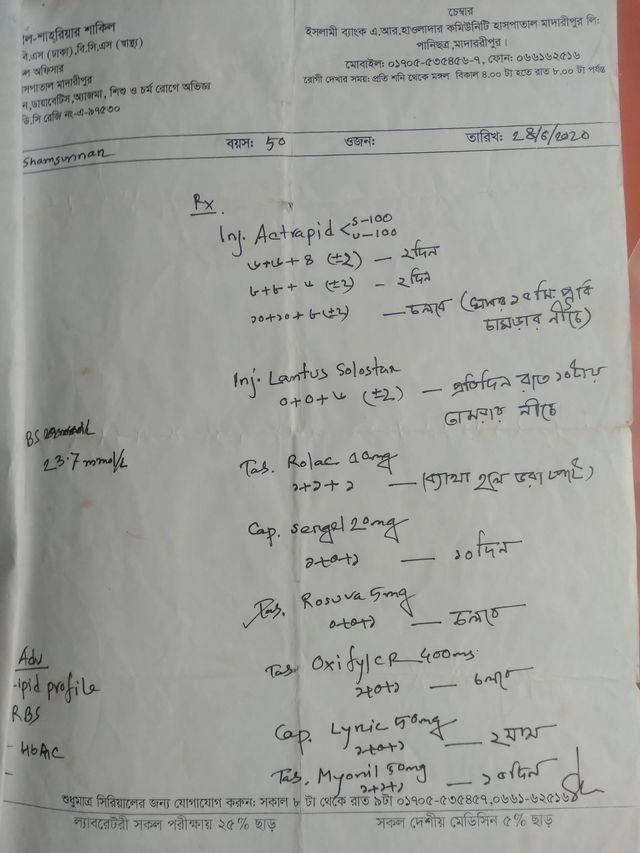 ল-শাহ্‌রিয়ার শাকিল
বি.এস (ঢাকা),বি.সি.এস (স্বাস্থ্য)
ল অফিসার
সপাতাল মাদারীপুর
ন,ডায়াবেটিস,অ্যাজমা, শিশু ও চর্ম রোগে অভিজ্ঞ
ডি.সি রেজি নং-এ-৯৭৫৩০
চেম্বার
ইসলামী ব্যাংক এ.আর.হাওলাদার কমিউনিটি হাসপাতাল মাদারীপুর লিঃ
পানিছত্র,মাদারীপুর।
মোবাইল: ০১৭০৫-৫৩৪৫৮৬-৭, ফোন: ০৬৬১৬২৫১৬
রোগী দেখার সময়: প্রতি শনি থেকে মঙ্গল বিকাল ৪.০০ টা হতে রাত ৮.০০ টা পর্যন্ত
Shamsunnan বয়স: 50 ওজন: তারিখ: 28/6/2020
Rx
Inj. Actrapid < S-100
U-100
৬+৬+৪ (±2) — ২দিন
৮+৮+৬ (±2) — ২দিন
১০+১০+৮ (±2) — চলবে (খাবার ১৫ মি: পূর্বে
চামড়ার নীচে)
Inj. Lantus Solostar
0+0+৬ (±2) — প্রতিদিন রাত ১০টায়
চামড়ার নীচে
BS
23.7 mmol/L
Tab. Rolac 10mg
১+১+১ — (ব্যাথা হলে ভরা পেটে)
Cap. Sergel 20mg
১+০+১ — ১০দিন
Tab. Rosuva 5mg
০+০+১ — চলবে
Adv
-ipid profile
RBS
- HbA1C
Tab. Oxifyl CR 400mg
১+০+১ — চলবে
Cap. Lyric 50mg
১+০+১ — ২মাস
Tab. Myonil 50mg
১+১+১ — ১০দিন
শুধুমাত্র সিরিয়ালের জন্য যোগাযোগ করুন: সকাল ৮ টা থেকে রাত ৯টা ০১৭০৫-৫৩৪৫৮৭,০৬৬১-৬২৫১৬
ল্যাবরেটরী সকল পরীক্ষায় ২৫% ছাড় সকল দেশীয় মেডিসিন ৫% ছাড়